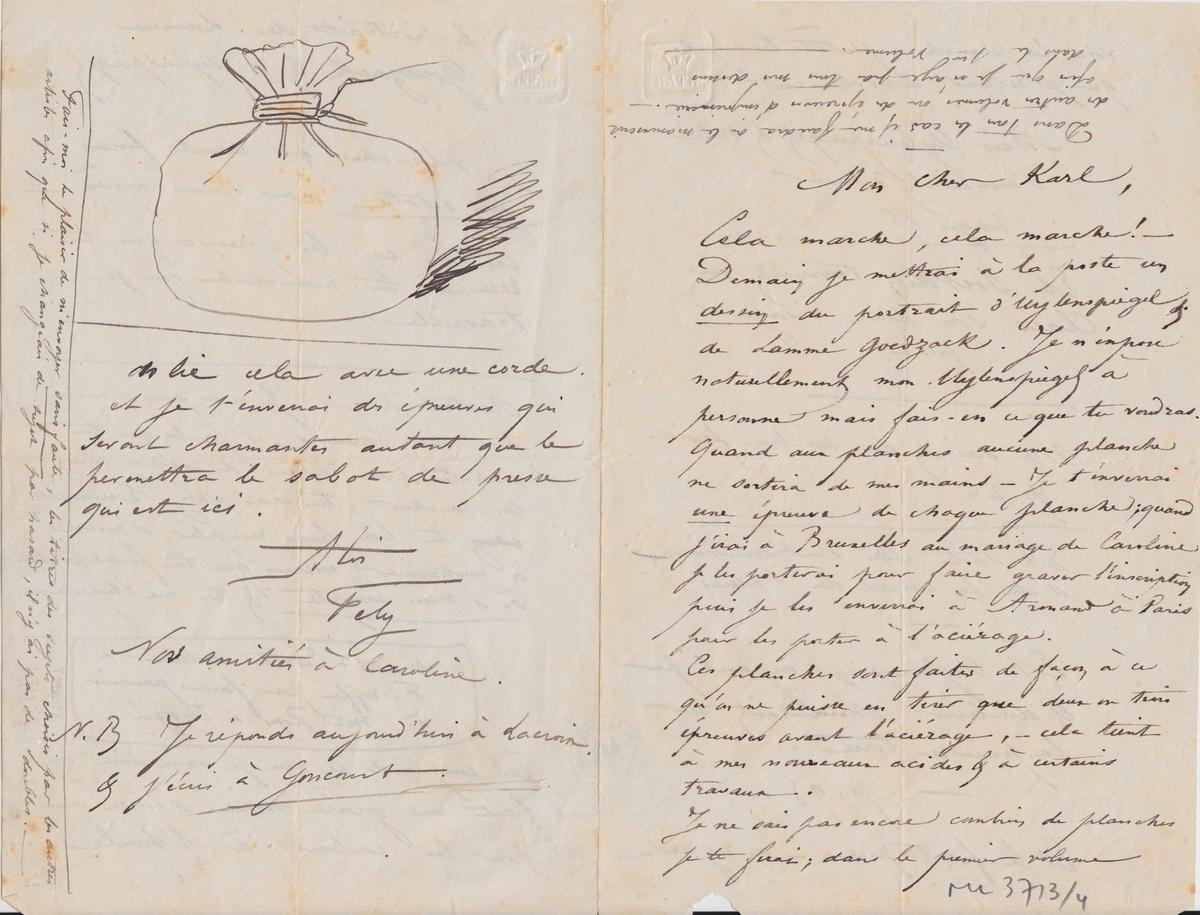 Mon cher Karl,
Cela marche, cela marche! –
Demain je mettrai à la poste un
dessin du portrait d'Uylenspiegel &
de Lamme Goedzack. Je n'impose
naturellement mon Uylenspiegel à
personne mais fais-en ce que tu voudras.
Quand aux planches aucune planche
ne sortira de mes mains – Je t'enverrai
une épreuve de chaque planche; quand
j'irai à Bruxelles au mariage de Caroline
je les porterai pour faire graver l'inscription
puis je les enverrai à Armand à Paris
pour les porter à l'aciérage.
Ces planches sont faites de façon à ce
qu'on ne puisse en tirer que deux ou trois
épreuves avant l'aciérage, – cela tient
à mes nouveaux acides & à certains
travaux..
Je ne sais pas encore combien de planches
je te ferai; dans le premier volume
ML 3713/4
Dans tous les cas il me faudra à le moment
des autres volumes ou des épreuves d'imprimerie. –
afin que je n'aye pas tous mes dessins
dans le 1er volume.
on lie cela avec une corde.
et je t'enverrai des épreuves qui
seront charmantes autant que le
permettra le sabot de presse
qui est ici.
à toi
Fely
Nos amitiés à Caroline.
N.B Je réponds aujourd'hui à Lacroix.
& j'écris à Goncourt.
Fais-moi le plaisir de m'envoyer sans faute, les titres des sujets choisis par les autres
artistes afin que si je changeais de sujet par hasard, il n'y ai pas de doubles. –